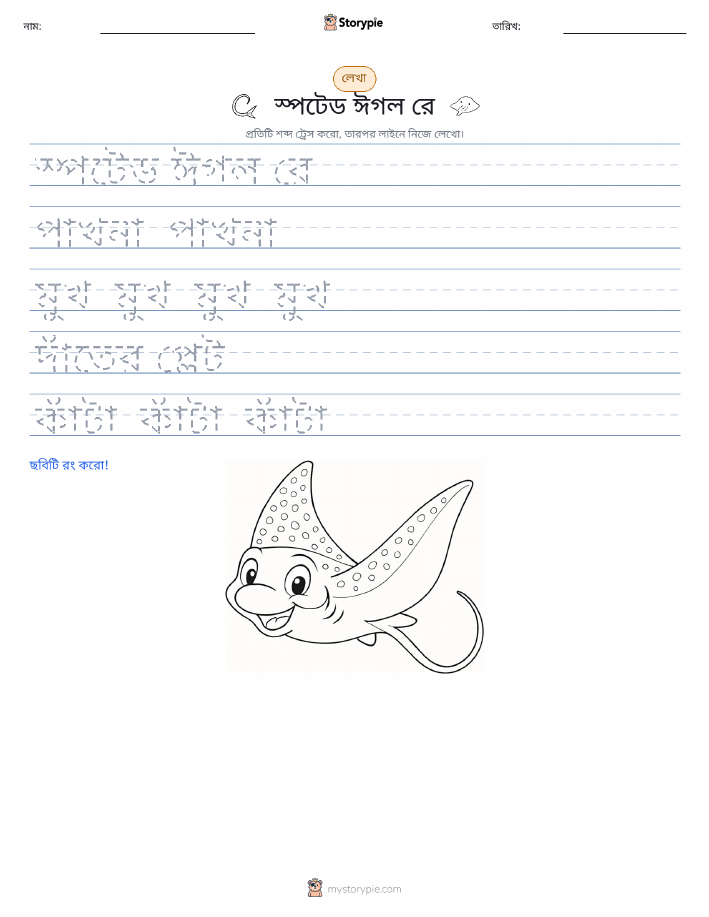 নাম:
Storypie
তারিখ:
লেখা
স্পটেড ঈগল রে
প্রতিটি শব্দ ট্রেস করো, তারপর লাইনে নিজে লেখো।
স্পটেড ঈগল রে
পাখনা পাখনা
মুখ মুখ মুখ মুখ
দাঁতের প্লেট
কাঁটা কাঁটা কাঁটা
ছবিটি রং করো!
mystorypie.com